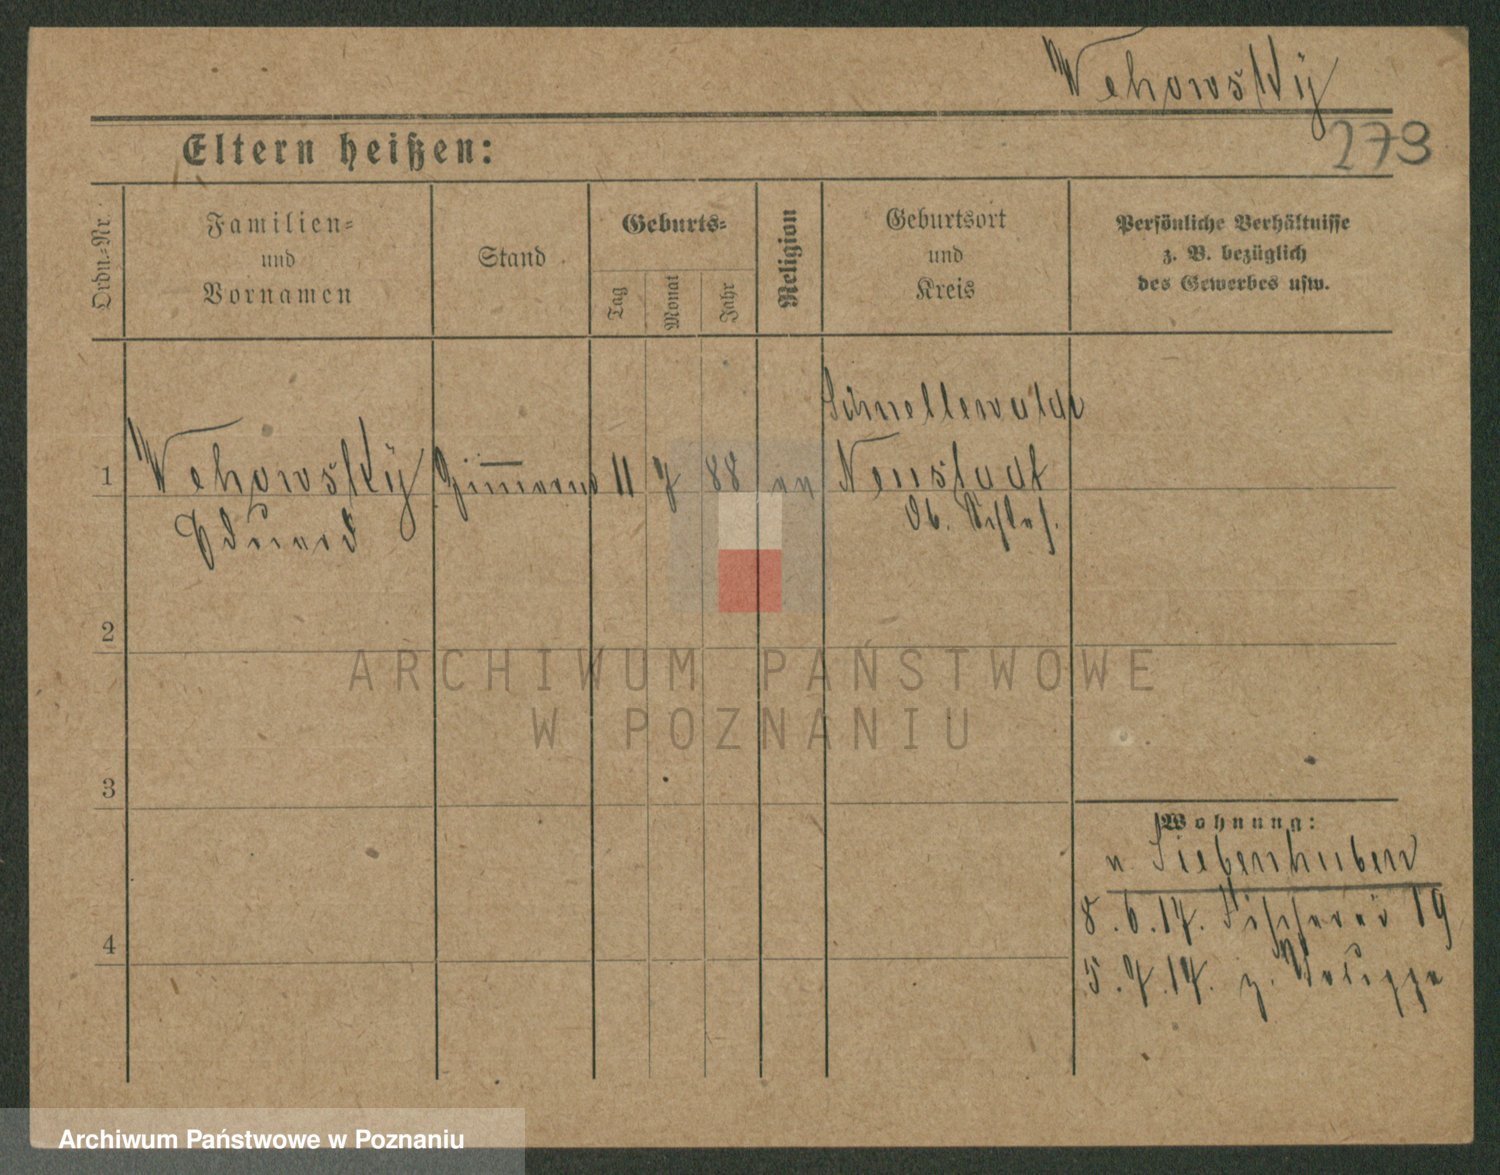 Wehowsky
273
Eltern heißen:
Ordn.=Nr.
Familien=
und
Vornamen
Stand
Geburts=
Tag
Monat
Jahr
Religion
Geburtsort
und
Kreis
Persönliche Verhältnisse
z. B. bezüglich
des Gewerbes usw.
1
Wehowsky
Eduard
11
7
88
Schnellewalde
Neustadt
Ob. Schles.
2
3
4
Wohnung:
n. Siebenhuben
8.6.17. Fischerei 19
5.7.17. z.
ARCHIWUM PAŃSTWOWE
W POZNANIU
Archiwum Państwowe w Poznaniu